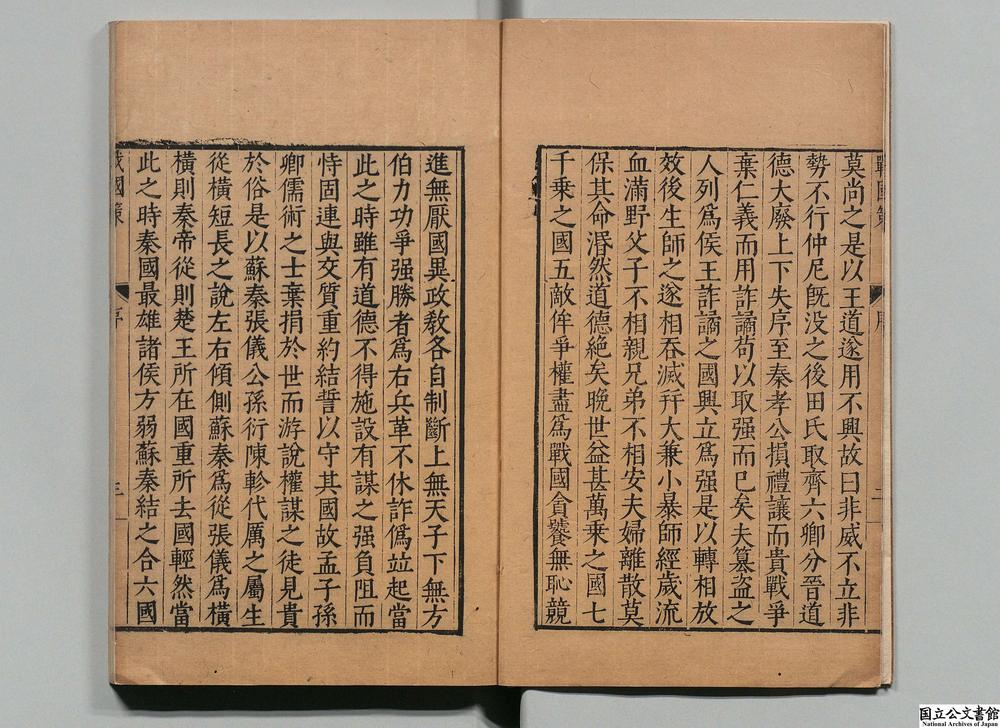 戰國策
二
莫尚之是以王道遂用不興故曰非威不立非
勢不行仲尼旣没之後田氏取齊六卿分晉道
德大廢上下失序至秦孝公損禮讓而貴戰爭
棄仁義而用詐譎苟以取强而已矣夫簒盗之
人列爲侯王詐譎之國興立爲强是以轉相放
效後生師之遂相吞滅幷大兼小暴師經歲流
血滿野父子不相親兄弟不相安夫婦離散莫
保其命湣然道德絶矣晚世益甚萬乘之國七
千乘之國五敵侔爭權盡爲戰國貪饕無恥競
進無厭國異政敎各自制斷上無天子下無方
伯力功爭强勝者爲右兵革不休詐僞竝起當
此之時雖有道德不得施設有謀之强負阻而
恃固連與交質重約結誓以守其國故孟子孫
卿儒術之士棄捐於世而游說權謀之徒見貴
於俗是以蘇秦張儀公孫衍陳軫代厲之屬生
從橫短長之說左右傾側蘇秦爲從張儀爲橫
橫則秦帝從則楚王所在國重所去國輕然當
此之時秦國最雄諸侯方弱蘇秦結之合六國
戰國策
序
三
国立公文書館
National Archives of Japan